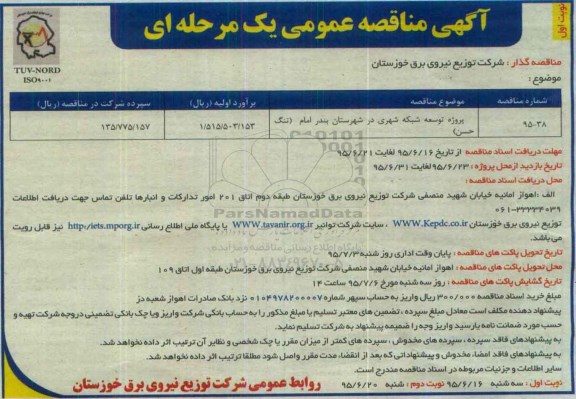 آگهی مناقصه عمومی یک مرحله ای
نوبت اول
TUV-NORD
ISO9001
مناقصه گذار : شرکت توزیع نیروی برق خوزستان
موضوع :
شماره مناقصه موضوع مناقصه برآورد اولیه (ریال) سپرده شرکت در مناقصه (ریال)
۹۵-۳۸ پروژه توسعه شبکه شهری در شهرستان بندر امام (تنگ حسن) ۱/۵۱۵/۵۰۳/۱۵۳ ۱۳۵/۷۷۵/۱۵۷
مهلت دریافت اسناد مناقصه از تاریخ ۹۵/۶/۱۶ لغایت ۹۵/۶/۲۱
تاریخ بازدید ازمحل پروژه : ۹۵/۶/۲۳ لغایت ۹۵/۶/۳۱
محل دریافت اسناد مناقصه :
الف :اهواز امانیه خیابان شهید منصفی شرکت توزیع نیروی برق خوزستان طبقه دوم اتاق ۲۰۱ امور تدارکات و انبارها تلفن تماس جهت دریافت اطلاعات
۰۶۱-۳۳۳۳۴۰۳۹
توزیع نیروی برق خوزستان WWW.Kepdc.co.ir ، سایت شرکت توانیر WWW.tavanir.org.ir یا پایگاه ملی اطلاع رسانی http:/iets.mporg.ir نیز قابل رویت
می باشد.
ParsNamadData
پایگاه اطلاع رسانی مناقصه و مزایده
۰۲۱-۸۸۳۴۹۶۷۰-۵
تاریخ تحویل پاکت های مناقصه : پایان وقت اداری روز شنبه ۹۵/۷/۳
محل تحویل پاکت های مناقصه : اهواز امانیه خیابان شهید منصفی شرکت توزیع نیروی برق خوزستان طبقه اول اتاق ۱۰۹
تاریخ گشایش پاکت های مناقصه : روز سه شنبه مورخ ۹۵/۷/۶ ساعت ۱۴
مبلغ خرید اسناد مناقصه ۳۰۰/۰۰۰ ریال واریز به حساب سپهر شماره ۰۱۰۴۹۷۸۲۰۰۰۰۷ نزد بانک صادرات اهواز شعبه دز
پیشنهاد دهنده مکلف است معادل مبلغ سپرده ، تضمین های معتبر تسلیم یا مبلغ مذکور را به حساب بانکی شرکت واریز ویا چک بانکی تضمینی دروجه شرکت تهیه و
حسب مورد ضمانت نامه یارسید واریز وجه را ضمیمه پیشنهاد به شرکت تسلیم نماید.
به پیشنهادهای فاقد سپرده ، سپرده های مخدوش ، سپرده های کمتر از میزان مقرر یا چک شخصی و نظایر آن ترتیب اثر داده نخواهد شد.
به پیشنهادهای فاقد امضا، مخدوش و پیشنهاداتی که بعد از انقضاء مدت مقرر واصل شود مطلقا ترتیب اثر داده نخواهد شد.
سایر اطلاعات و جزئیات مربوطه در اسناد مناقصه مندرج است.
نوبت اول : سه شنبه ۹۵/۶/۱۶ نوبت دوم : شنبه ۹۵/۶/۲۰ روابط عمومی شرکت توزیع نیروی برق خوزستان